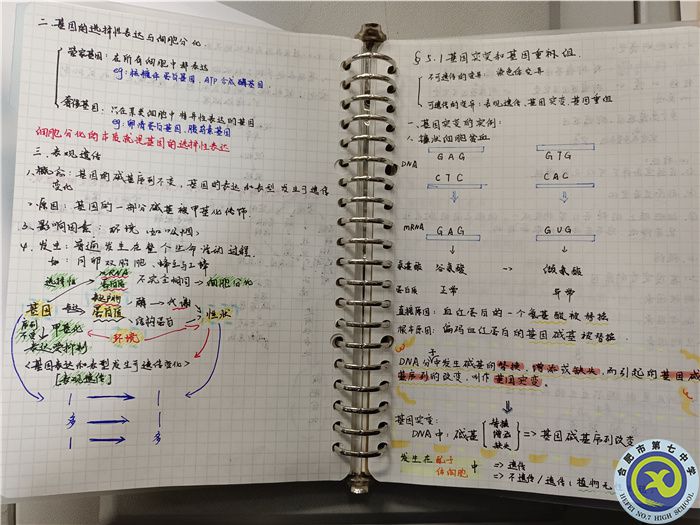 二.基因的选择性表达与细胞分化.
管家基因：在所有细胞中都表达
eg：核糖体蛋白基因、ATP合成酶基因.
奢侈基因：只在某类细胞中特异性表达的基因
eg：卵清蛋白基因、胰岛素基因
细胞分化的本质就是基因的选择性表达
三.表观遗传
1.概念：基因的碱基序列不变，基因的表达和表型发生可遗传
变化
2.原因：基因的一部分碱基被甲基化修饰.
3.影响因素：环境（如吸烟）
4.发生：普遍发生在整个生命活动过程.
如：同卵双胞胎 蜂王与工蜂
选择性 mRNA 蛋白质 不完全相同→细胞分化
基因 表达 蛋白质 酶→代谢 性状
结构蛋白
甲基化 环境
表达受抑制
<基因表达和表型发生可遗传变化>
[表观遗传]
1 → 1
多 → 1
1 → 多
§5.1基因突变和基因重组.
不可遗传的变异：
可遗传的变异：表观遗传、基因突变、基因重组
一、基因突变的实例：
1.镰状细胞贫血
DNA GAG GTG
CTC CAC
mRNA GAG GUG
氨基酸 谷氨酸 -> 缬氨酸
蛋白质 正常 异常
直接原因：血红蛋白的一个氨基酸被替换
根本原因：编码血红蛋白的基因碱基被替换.
DNA分子中发生碱基的替换、增添或缺失，而引起的基因碱
基序列的改变，叫作基因突变。
基因突变：
DNA中：碱基 替换 增添 缺失 => 基因碱基序列改变
发生在 配子 中 => 遗传
体细胞 => 不遗传/遗传（植物无
合肥市第七中学
HEFEI NO.7 HIGH SCHOOL